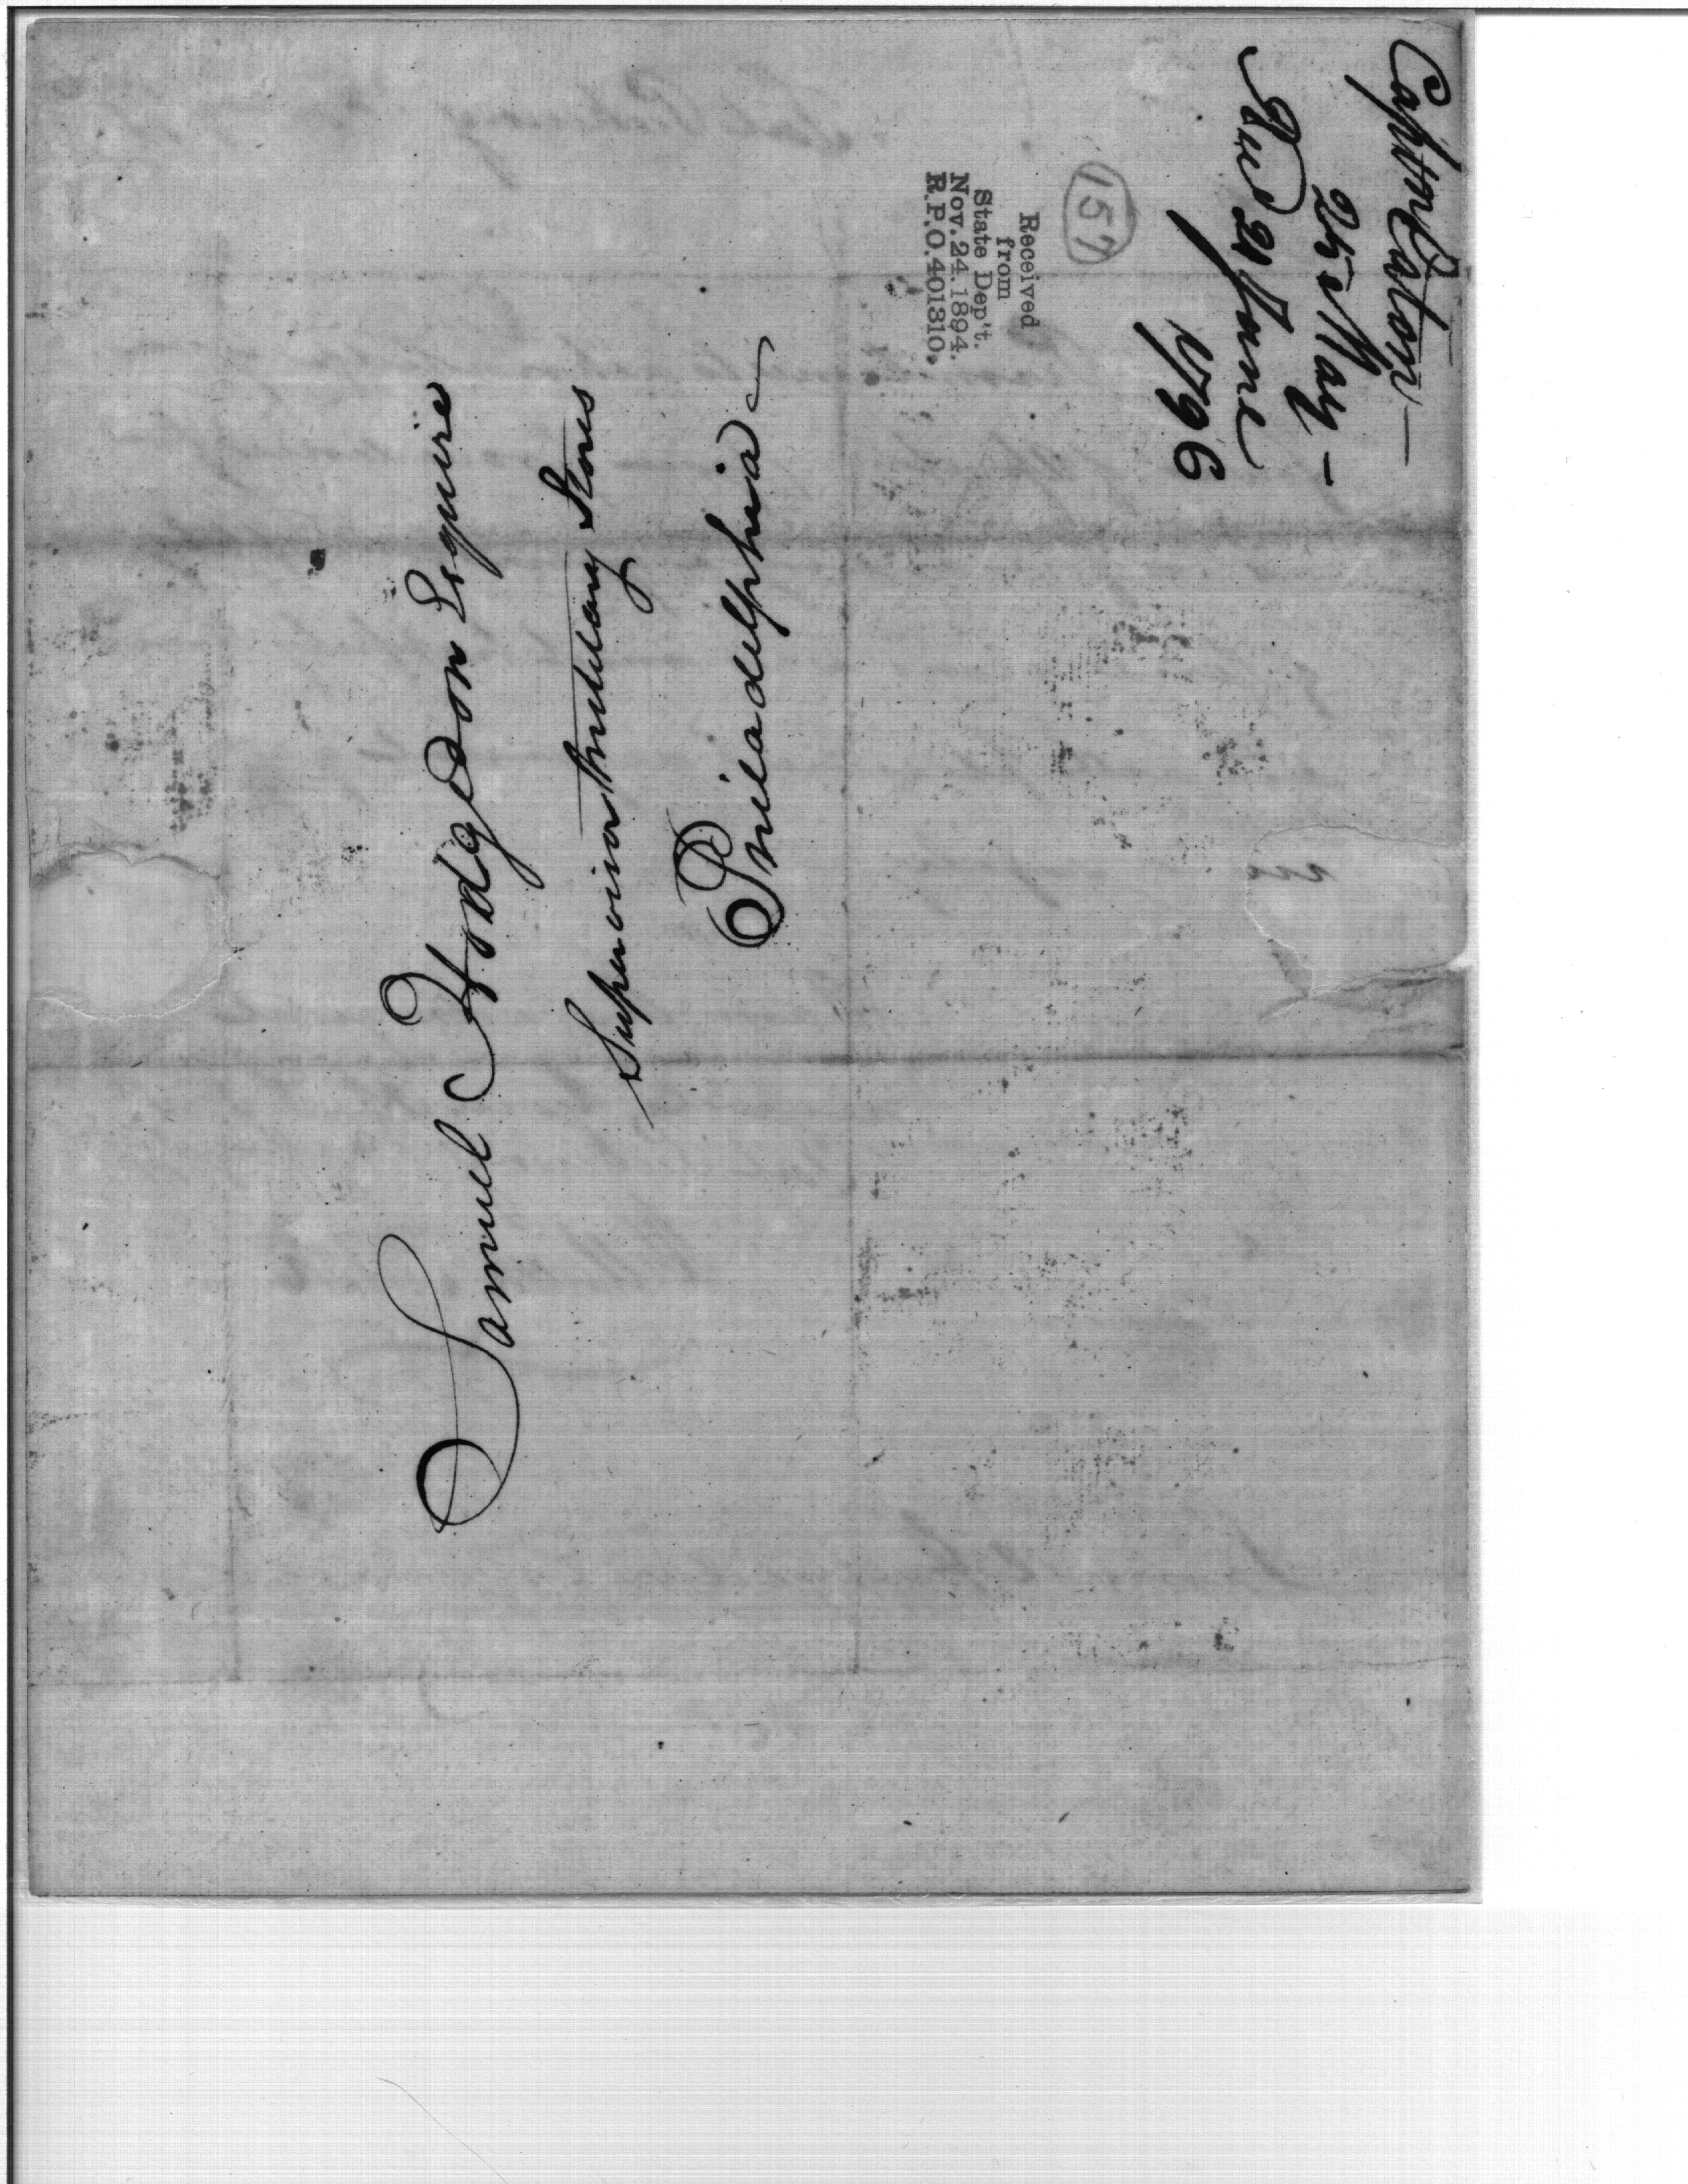 Samuel Hodgdon Esquire
Superior Military Stores
Philadelphia
Captn Eaton —
25 May —
Rec'd 21 June
1796
157
Received
from
State Dep't.
Nov. 24. 1894.
R.P.O. 401310.